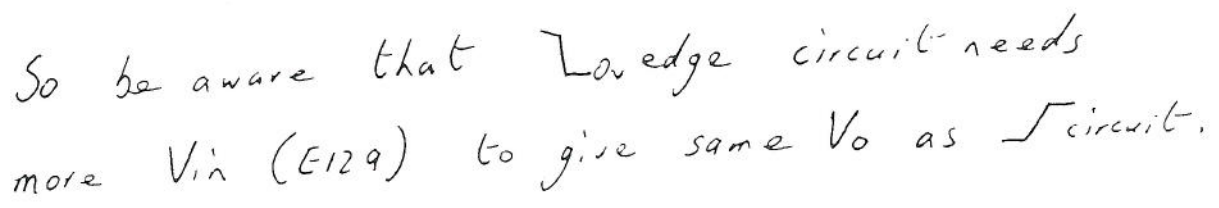 So be aware that ⎤_0v edge circuit needs
more Vin (E12a) to give same Vo as _⎡ circuit.